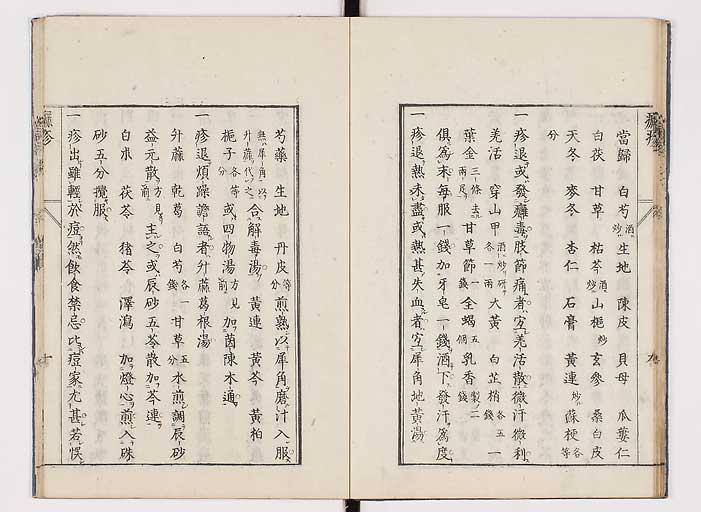 當歸 白芍酒炒 生地 陳皮 貝母 瓜蔞仁
白茯 甘草 枯芩酒炒 山梔炒 玄參 桑白皮
天冬 麥冬 杏仁 石膏 黃連炒 蘇梗各等
分
一疹退或發癰毒肢節痛者宜羌活散微汗微利
羌活 穿山甲酒炒研各一兩 大黃 白芷梢各五錢 一
葉金三條去足 甘草節一錢 全蝎五個 乳香製二錢
俱為末每服一錢加牙皂一錢酒下發汗為度
一疹退熱未盡或熱甚失血者宜犀角地黃湯
芍藥 生地 丹皮等分 煎熟以犀角磨汁入服
無犀角以升蔴代之 合解毒湯 黃連 黃芩 黃柏
梔子各等分 或四物湯方見前 加茵陳木通
一疹退煩躁譫語者升蔴葛根湯
升蔴 乾葛 白芍各一錢 甘草五分 水煎調辰砂
益元散方見前 主之或辰砂五苓散加芩連
白朮 茯苓 猪苓 澤瀉 加燈心煎入硃
砂五分攪服
一疹出雖輕於痘然飲食禁忌比痘家尤甚若悞